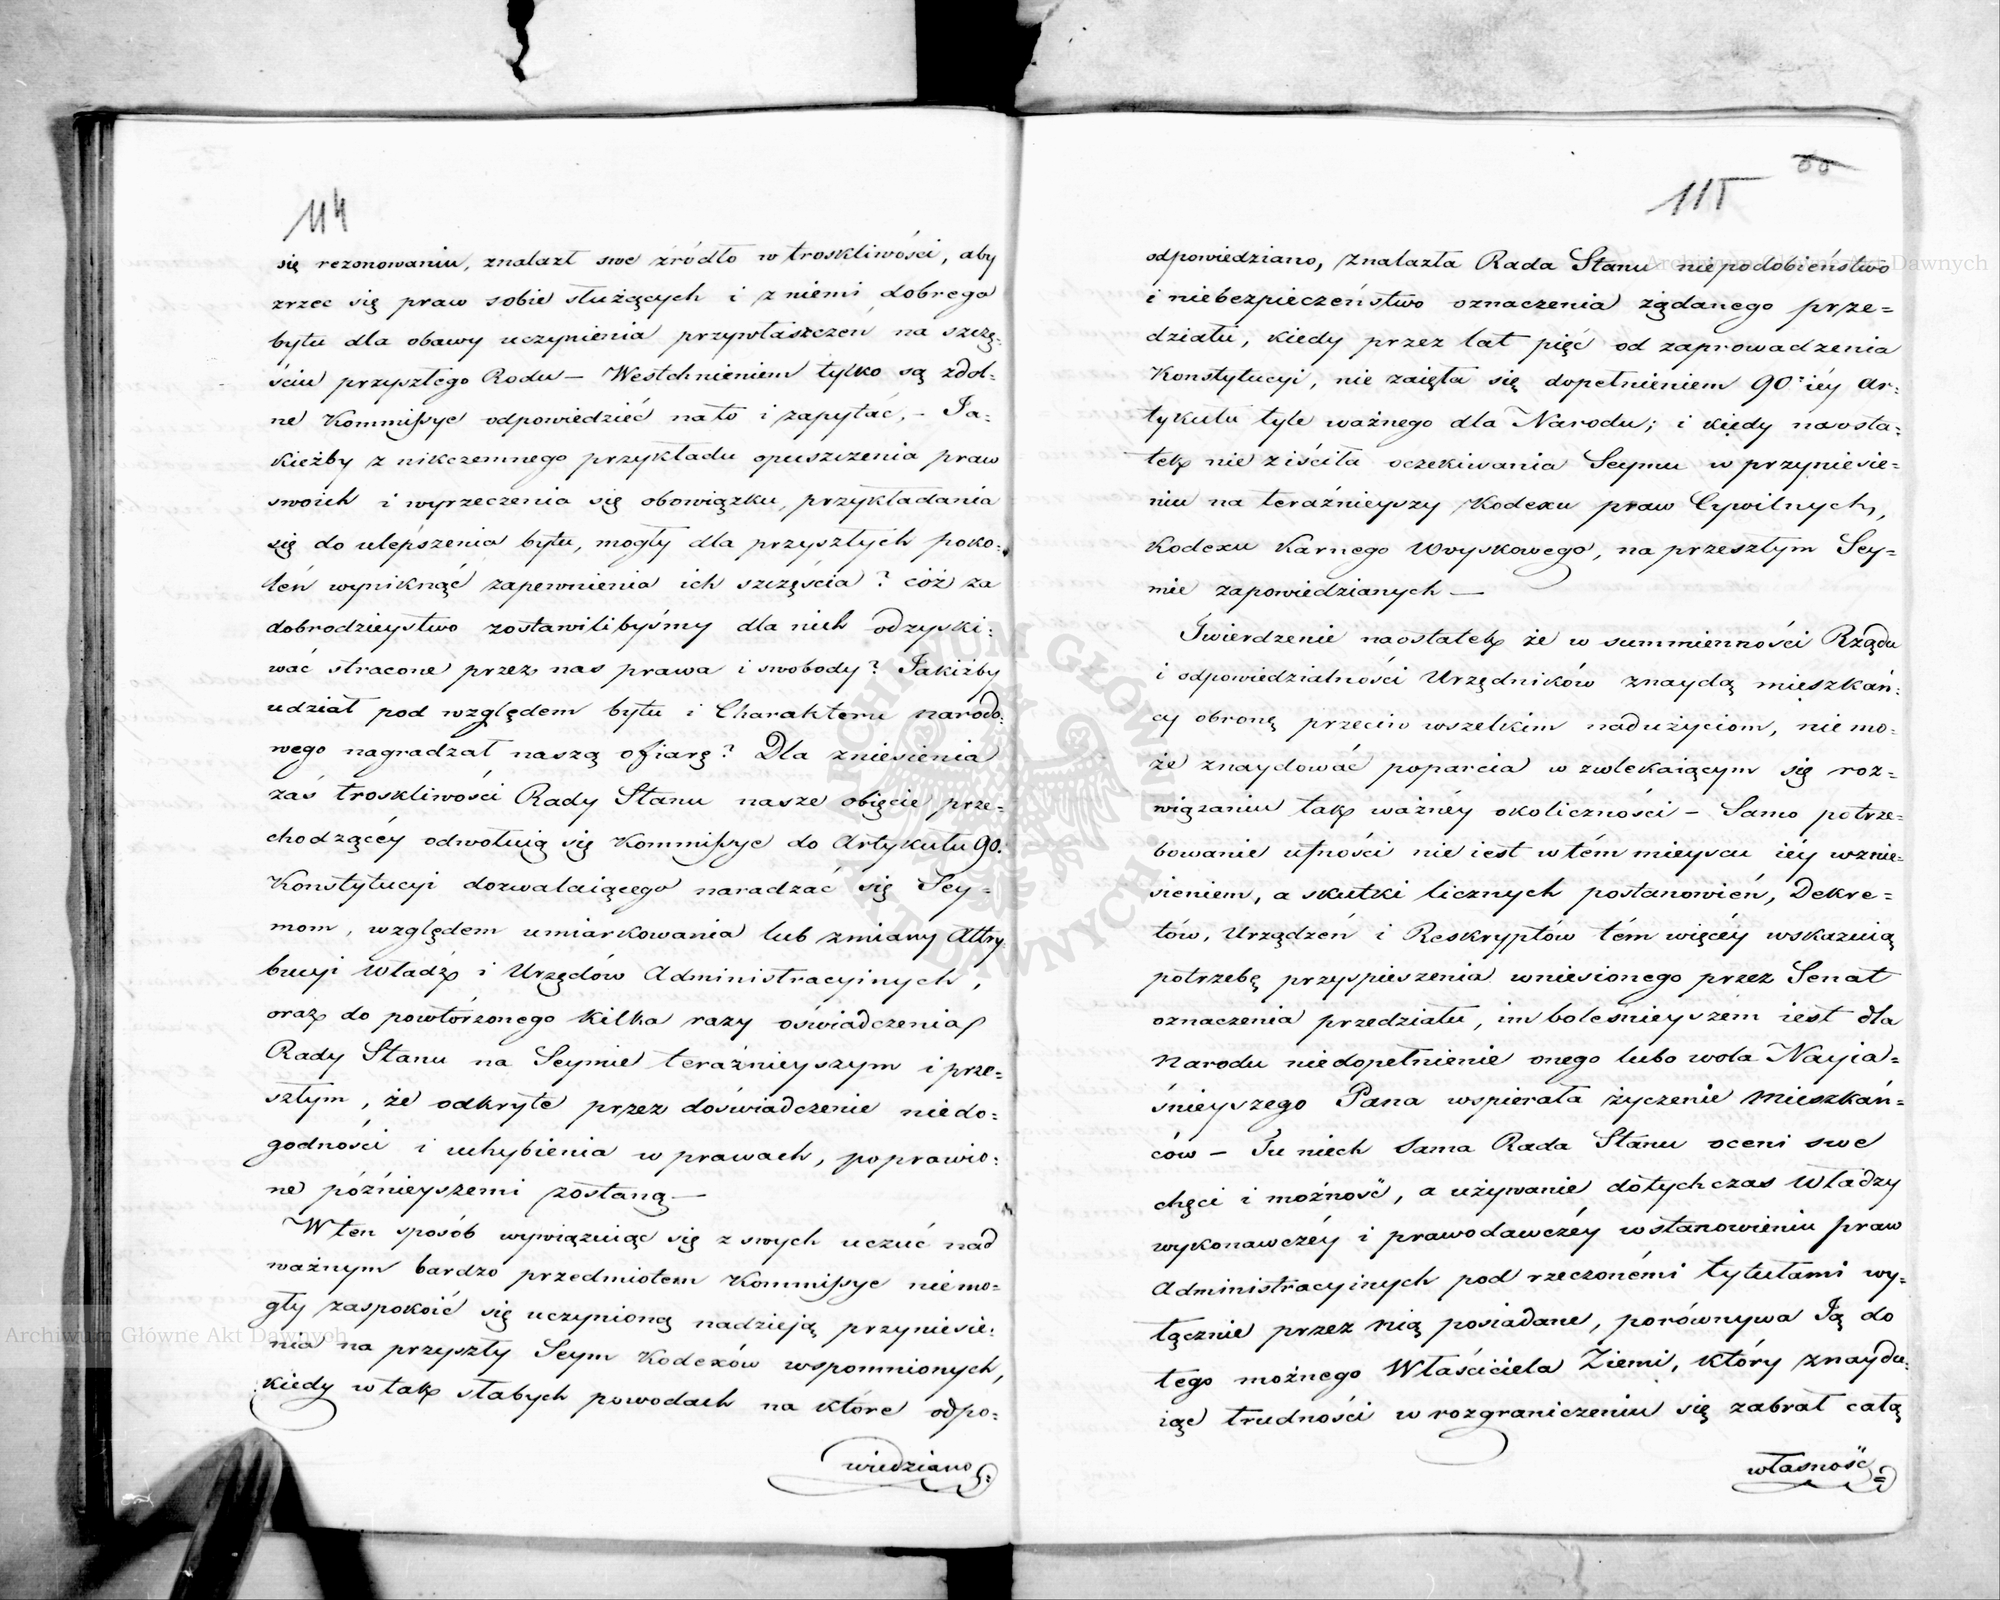 114
się rezonowaniu, znalazł swe źródło w troskliwości, aby
zrzec się praw sobie służących i z niemi dobrego
bytu dla obawy uczynienia przywłaszczeń na szczę=
ściu przyszłego Rodu — Westchnieniem tylko są zdol=
ne Kommissye odpowiedzieć na to i zapytać, — Ja=
kieżby z nikczemnego przykładu opuszczenia praw
swoich i wyrzeczenia się obowiązku, przykładania
się do ulepszenia bytu, mogły dla przyszłych poko=
leń wyniknąć zapewnienia ich szczęścia? cóż za
dobrodzieystwo zostawilibyśmy dla nich odzyski=
wać stracone przez nas prawa i swobody? Jakiżby
udział pod względem bytu i Charakteru narodo=
wego nagradzał naszą ofiarę? Dla zniesienia
zaś troskliwości Rady Stanu nasze obięcie prze=
chodzącéy odwołuią się Kommissye do Artykułu 90.
Konstytucyi dozwalaiącego naradzać się Sey=
mom, względem umiarkowania lub zmiany Attry
bucyi Władz i Urzędów Administracyinych,
oraz do powtórzonego kilka razy oświadczenia
Rady Stanu na Seymie teraźnieyszym i prze=
szłym, że odkryte przez doświadczenie niedo=
godności i uchybienia w prawach, poprawio=
ne późnieyszemi zostaną —
W ten sposób wywiązuiąc się z swych uczuć nad
ważnym bardzo przedmiotem Kommissye niemo=
gły zaspokoić się uczynioną nadzieją przyniesie=
nia na przyszły Seym Kodexów wspomnionych,
kiedy w tak słabych powodach na które odpo=
wiedziano
115
odpowiedziano, znalazła Rada Stanu niepodobieństwo
i niebezpieczeństwo oznaczenia żądanego prze=
działu, kiedy przez lat pięć od zaprowadzenia
Konstytucyi, nie zaięła się dopełnieniem 90:iéy Ar=
tykułu tyle ważnego dla Narodu; i kiedy naosta=
tek nie ziściła oczekiwania Seymu w przyniesie=
niu na teraźnieyszy Kodexu praw Cywilnych,
Kodexu Karnego Woyskowego, na przeszłym Sey=
mie zapowiedzianych —
Twierdzenie naostatek że w summienności Rządu
i odpowiedzialności Urzędników znaydą mieszkań=
cy obronę przeciw wszelkim nadużyciom, nie mo=
że znaydować poparcia w zwlekaiącym się roz=
wiązaniu tak ważnéy okoliczności — Samo potrze=
bowanie ufności nie iest w tém mieyscu iéy wznie=
sieniem, a skutki licznych postanowień, Dekre=
tów, Urządzeń i Reskryptów tém więcéy wskazuią
potrzebę przyspieszenia wniesionego przez Senat
oznaczenia przedziału, im boleśnieyszém iest dla
Narodu niedopełnienie onego lubo wola Nayja=
śnieyszego Pana wspierała życzenie Mieszkań=
ców — Tu niech Sama Rada Stanu oceni swe
chęci i możność, a używanie dotychczas Władzy
wykonawczéy i prawodawczéy w stanowieniu praw
Administracyinych pod rzeczonémi tytułami wy=
łącznie przez nią posiadane, porównywa Ją do
tego możnego Właściciela Ziemi, który znaydu=
iąc trudności w rozgraniczeniu się zabrał całą
własność=
Archiwum Główne Akt Dawnych
Archiwum Główne Akt Dawnych
ARCHIWUM GŁÓWNE AKT DAWNYCH